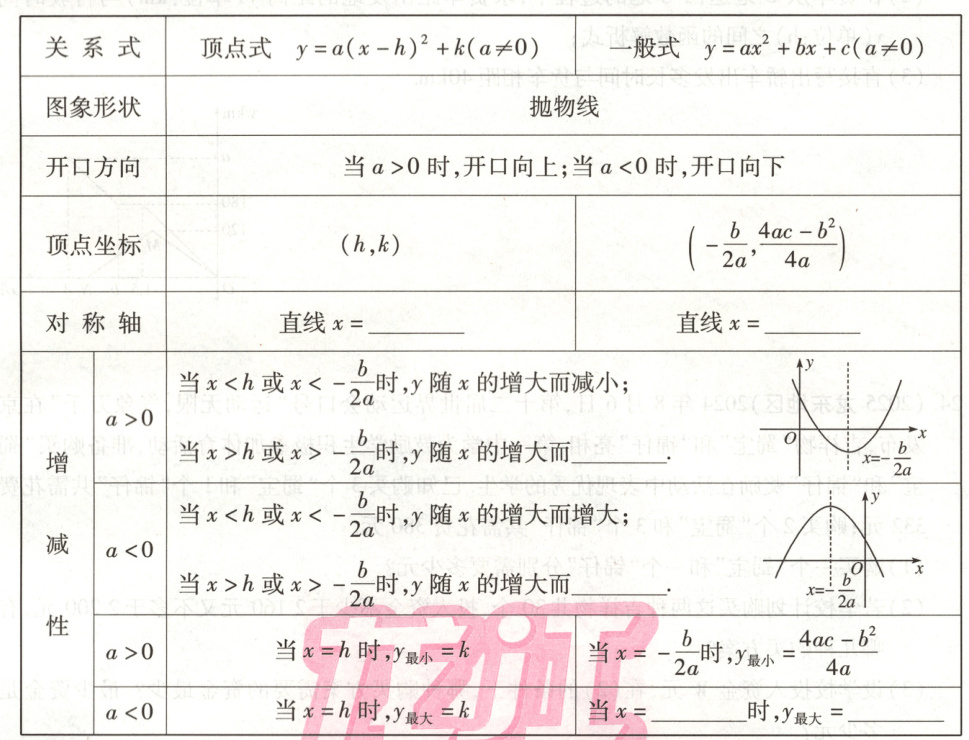 关系式 顶点式 y=a(x-h)²+k(a≠0) 一般式 y=ax²+bx+c(a≠0)
图象形状 抛物线
开口方向 当a>0时,开口向上;当a<0时,开口向下
顶点坐标 (h,k) (-b/2a, (4ac-b²)/4a)
对称轴 直线x=________ 直线x=________
增减性
a>0
当x<h或x<-b/2a时,y随x的增大而减小;
当x>h或x>-b/2a时,y随x的增大而________.
y O x x=-b/2a
a<0
当x<h或x<-b/2a时,y随x的增大而增大;
当x>h或x>-b/2a时,y随x的增大而________.
y O x x=-b/2a
a>0 当x=h时,y最小=k 当x=-b/2a时,y最小=(4ac-b²)/4a
a<0 当x=h时,y最大=k 当x=________时,y最大=________